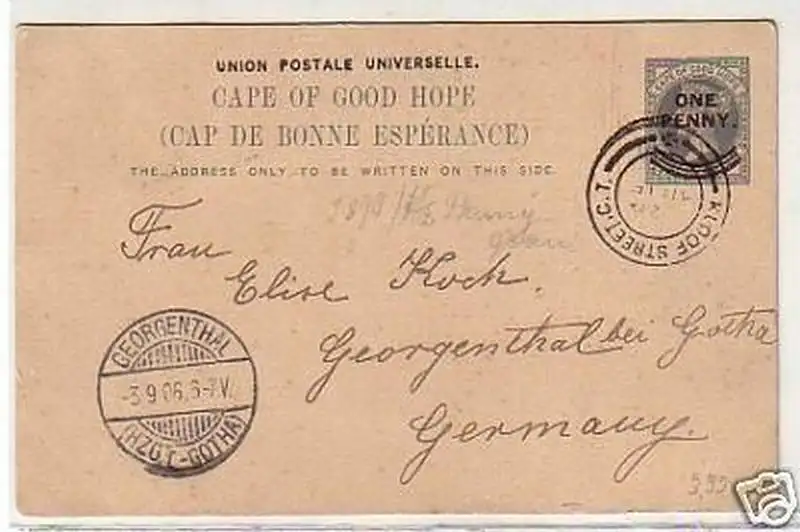 UNION POSTALE UNIVERSELLE.
CAPE OF GOOD HOPE
(CAP DE BONNE ESPÉRANCE)
THE ADDRESS ONLY TO BE WRITTEN ON THIS SIDE.
CAPE OF GOOD HOPE
ONE
PENNY.
KLOOF STREET. C.T.
Frau
Elise Koch.
Georgenthal bei Gotha
Germany.
GEORGENTHAL
-3.9.06.6-7V.
(HZGT.-GOTHA)